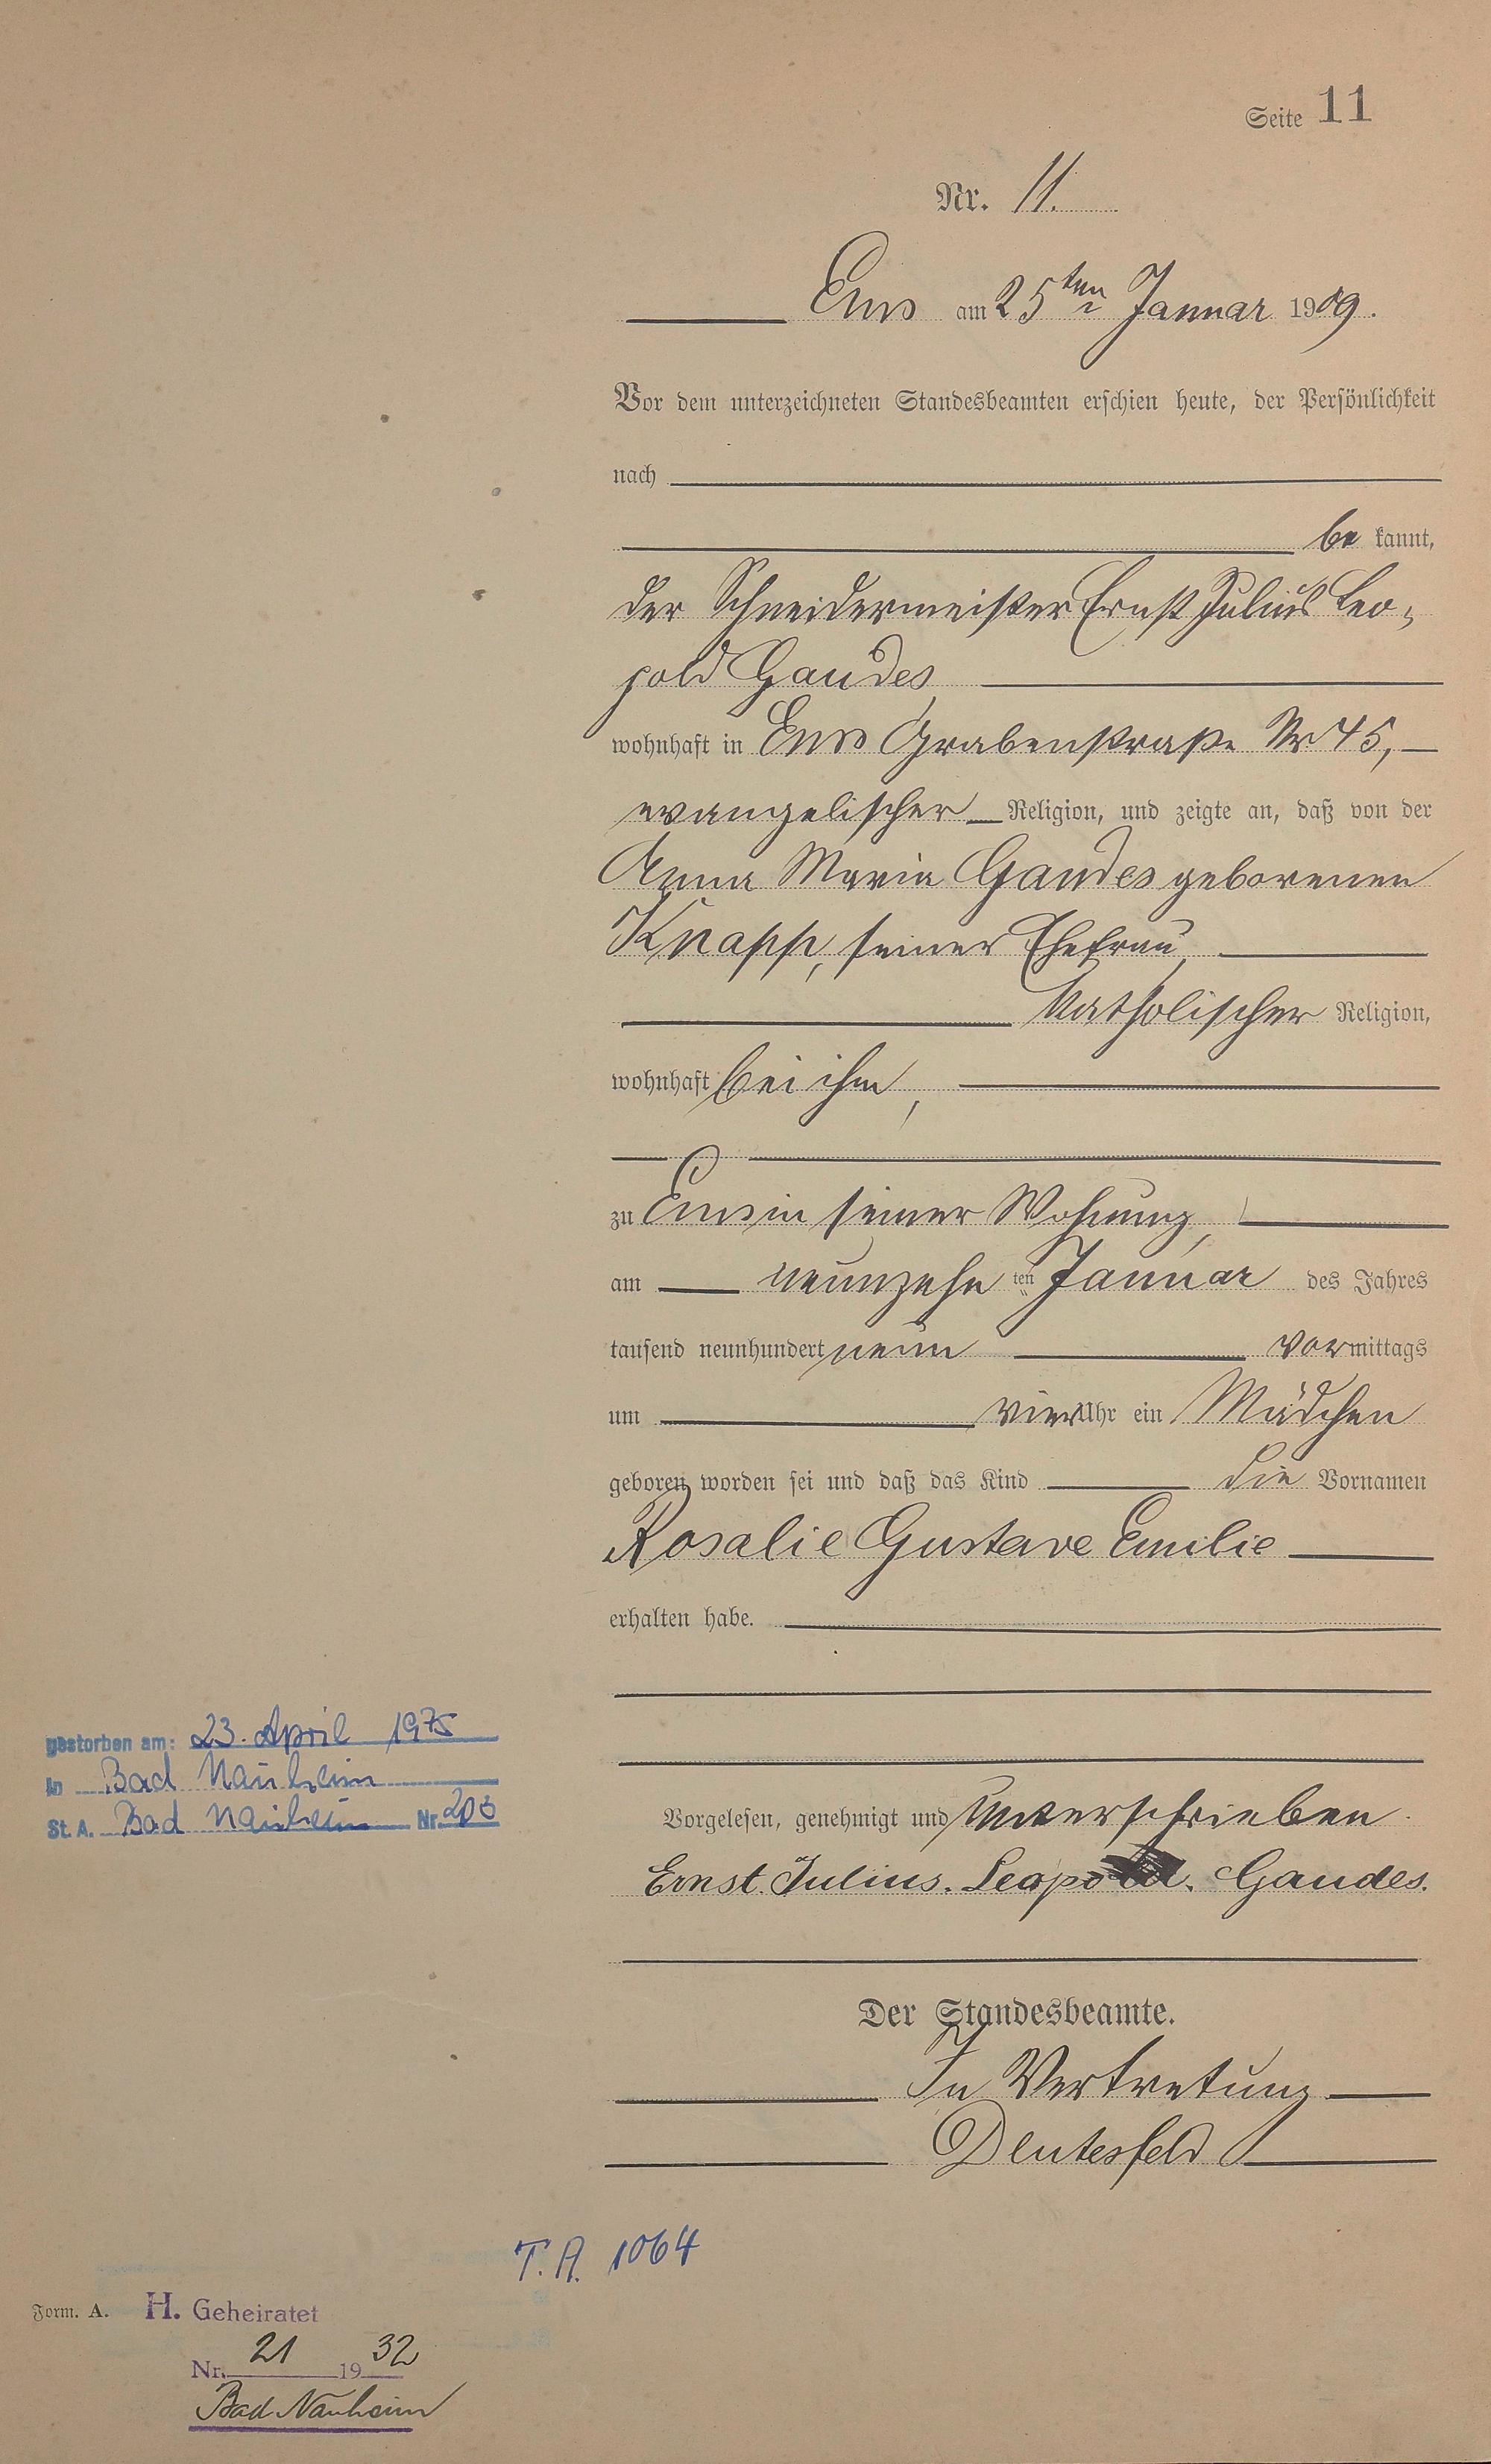 Seite 11
Nr. 11.
Ems am 25ten Januar 1909.
Vor dem unterzeichneten Standesbeamten erschien heute, der Persönlichkeit
nach
be kannt,
der Schneidermeister Ernst Julius Leo-
pold Gandes,
wohnhaft in Ems Grabenstraße Nr 45,
evangelischer Religion, und zeigte an, daß von der
Anna Maria Gandes geborenen
Knapp, seiner Ehefrau,
katholischer Religion,
wohnhaft bei ihm,
zu Ems in seiner Wohnung,
am neunzehn ten Januar des Jahres
tausend neunhundert neun vormittags
um vier Uhr ein Mädchen
geboren worden sei und daß das Kind die Vornamen
Rosalie Gustave Emilie
erhalten habe.
gestorben am: 23. April 1975
in Bad Nauheim
St. A. Bad Nauheim Nr. 203
Vorgelesen, genehmigt und unterschrieben
Ernst. Julius. Leopold. Gandes.
Der Standesbeamte.
In Vertretung
Deutesfeld
T. A. 1064
Form. A. H. Geheiratet
Nr. 21 1932
Bad Nauheim